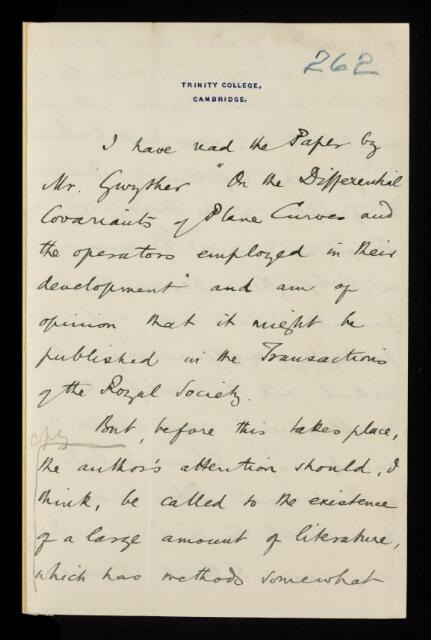 262
TRINITY COLLEGE,
CAMBRIDGE.
I have read the Paper by
Mr. Gwyther "On the Differential
Covariants of Plane Curves and
the operators employed in their
development" and am of
opinion that it might be
published in the Transactions
of the Royal Society.
But, before this takes place,
the author's attention should, I
think, be called to the existence
of a large amount of literature,
which has methods somewhat